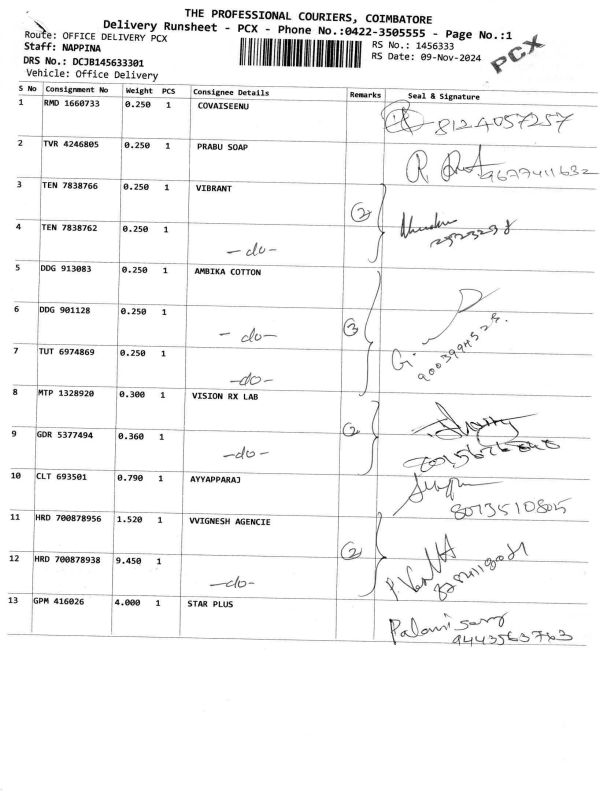 THE PROFESSIONAL COURIERS, COIMBATORE
Delivery Runsheet - PCX - Phone No.:0422-3505555 - Page No.:1
Route: OFFICE DELIVERY PCX
RS No.: 1456333
PCX
Staff: NAPPINA
RS Date: 09-Nov-2024
DRS No.: DCJB145633301
Vehicle: Office Delivery
S No Consignment No Weight PCS Consignee Details Remarks Seal & Signature
1 RMD 1660733 0.250 1 COVAISEENU
8124057257
2 TVR 4246805 0.250 1 PRABU SOAP
9677411632
3 TEN 7838766 0.250 1 VIBRANT
2
4 TEN 7838762 0.250 1
- do -
5 DDG 913083 0.250 1 AMBIKA COTTON
6 DDG 901128 0.250 1
- do -
3
7 TUT 6974869 0.250 1
- do -
8 MTP 1328920 0.300 1 VISION RX LAB
2
9 GDR 5377494 0.360 1
- do -
10 CLT 693501 0.790 1 AYYAPPARAJ
8073510805
11 HRD 700878956 1.520 1 VVIGNESH AGENCIE
2
12 HRD 700878938 9.450 1
- do -
13 GPM 416026 4.000 1 STAR PLUS
Palanisamy
9443563763